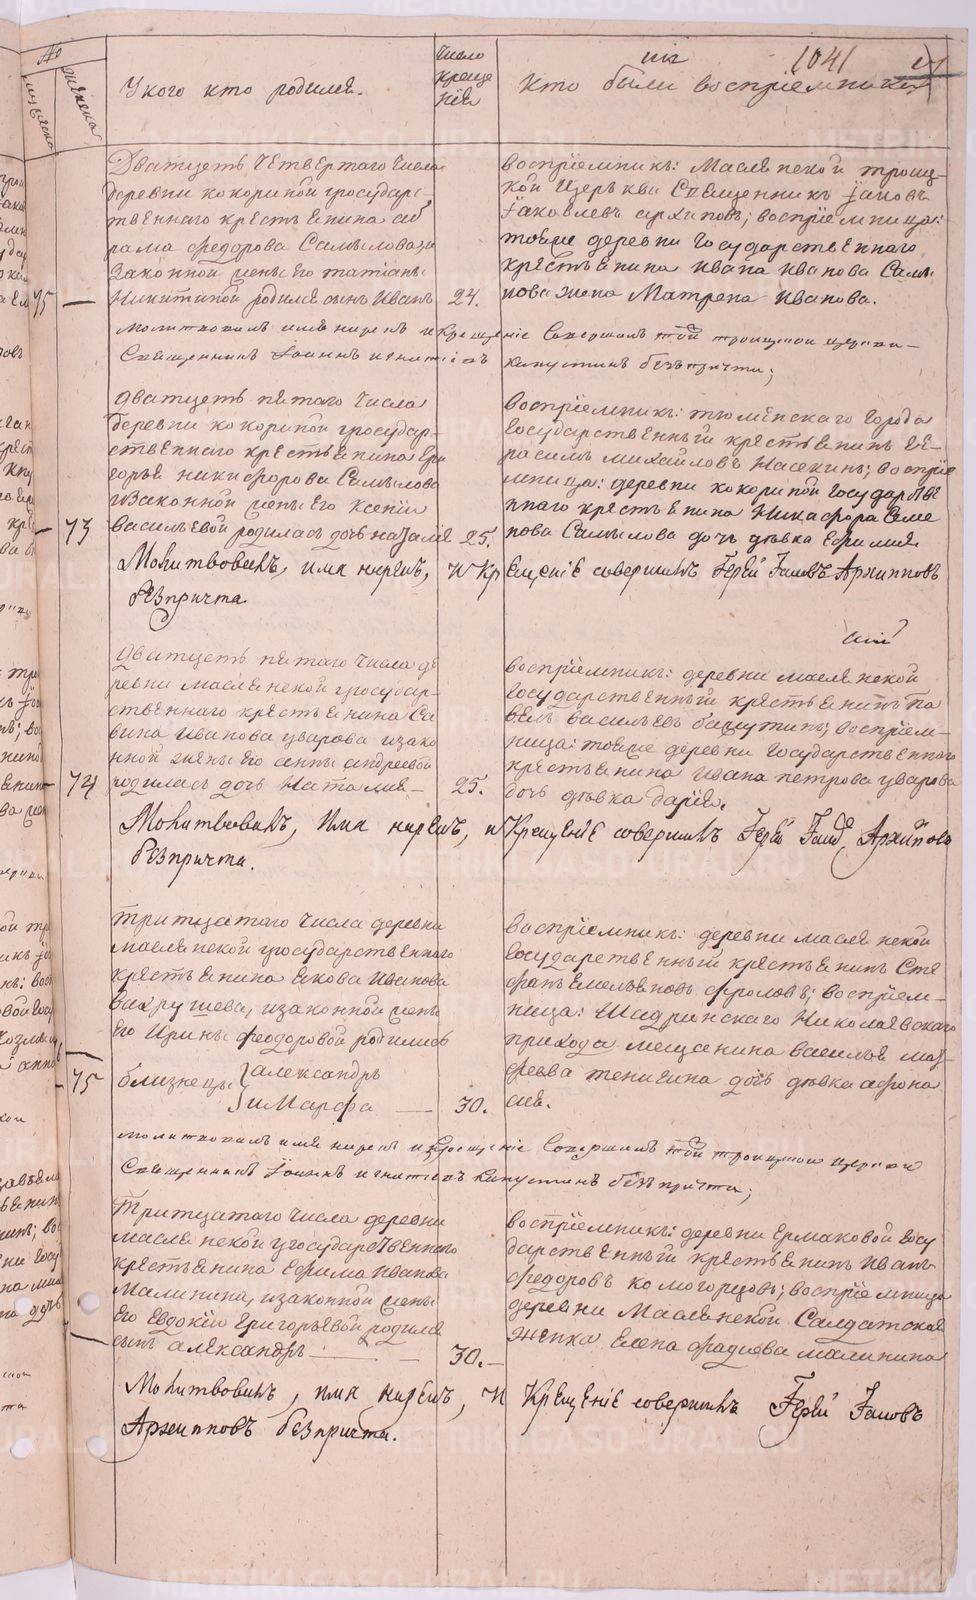 №
мужеска
женска
У кого кто родился.
Число
креще
нія
1041
Кто были восприемники
Дватцеть четвертаго числа
деревни кокориной государс-
твеннаго крестьянина Ав
рама федорова Самылова, и
законной жены его татіаны
75 — Никитиной родился сынъ Иванъ 24.
восприемникъ: Маслянской троиц-
кой церькви Священникъ Іаковъ
Іаковлевъ архиповъ; восприемница:
тойже деревни государственнаго
крестьянина Ивана Иванова Самы
лова жена Матрена Иванова.
молитвовалъ имя нарекъ и крещеніе совершалъ той троицкой церкви
Священникъ Іоаннъ игнатіевъ Капустинъ безъ причта;
дватцеть пятаго числа
деревни кокориной государ-
ственнаго крестьянина Гри
горья никифорова Самылова
и законной жены его Ксеніи
— 73 васильевой родилась дочь наталія 25.
восприемникъ: тюменскаго города
государственный крестьянинъ ге-
расимъ михайловъ Насекинъ; восприе
мница: деревни кокориной государстве
ннаго крестьянина Никифора Семе
нова Самылова дочь дѣвка Ефимия
Молитвовалъ, имя нарекъ, и крещеніе совершилъ Іерей Іаковъ Архипповъ
безпричта.
дватцеть пятаго числа де
ревни маслянской государ-
ственнаго крестьянина Са
вина Иванова уварова и зако
нной жены его анны андреевой
74 родилась дочь Наталия — 25.
восприемникъ: деревни маслянской
государственный крестьянинъ Па
велъ васильевъ бачутинъ; восприем-
ница: тойже деревни государственнаго
крестьянина Ивана петрова уварова
дочь дѣвка дария.
Молитвовалъ, имя нарекъ, и крещеніе совершилъ Іерей Іаковъ Архиповъ
безпричта.
тритцатаго числа деревни
маслянской государственнаго
крестьянина Якова Иванова
вахрушева, и законной жены
его Ирины феодоровой родились
— 75 близнецы александръ
и Марфа — 30.
восприемникъ: деревни маслянской
государственный крестьянинъ Сте
фанъ емельяновъ фроловъ; восприем-
ница: Шадринскаго Николаевскаго
прихода мещанина василья мат
фѣева тенигина дочь дѣвка афона
сия.
молитвовалъ имя нарекъ и крещеніе совершалъ той троицкой церкви
Священникъ Іоаннъ игнатіевъ Капустинъ безъ причта;
Тритцатаго числа деревни
маслянской государственнаго
крестьянина Ефима Иванова
Малинина, и законной жены
его Евдокіи Григорьевой родился
сынъ александръ — 30. —
восприемникъ: деревни Ермаковой госу
дарственный крестьянинъ Иванъ
федоровъ комогорцовъ; восприемница
деревни Маслянской Салдатская
женка Елена фадиева малинина
Молитвовалъ, имя нарекъ, и крещеніе совершилъ Іерей Іаковъ
Архипповъ безпричта.
METRIKI.GASO-URAL.RU